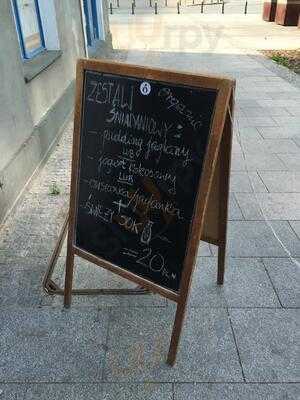 ZESTAW
ŚNIADANIOWY:
- pudding jaglany
LUB
- jogurt kokosowy
LUB
- owsianka/jaglanka
+
ŚWIEŻY SOK
= 20